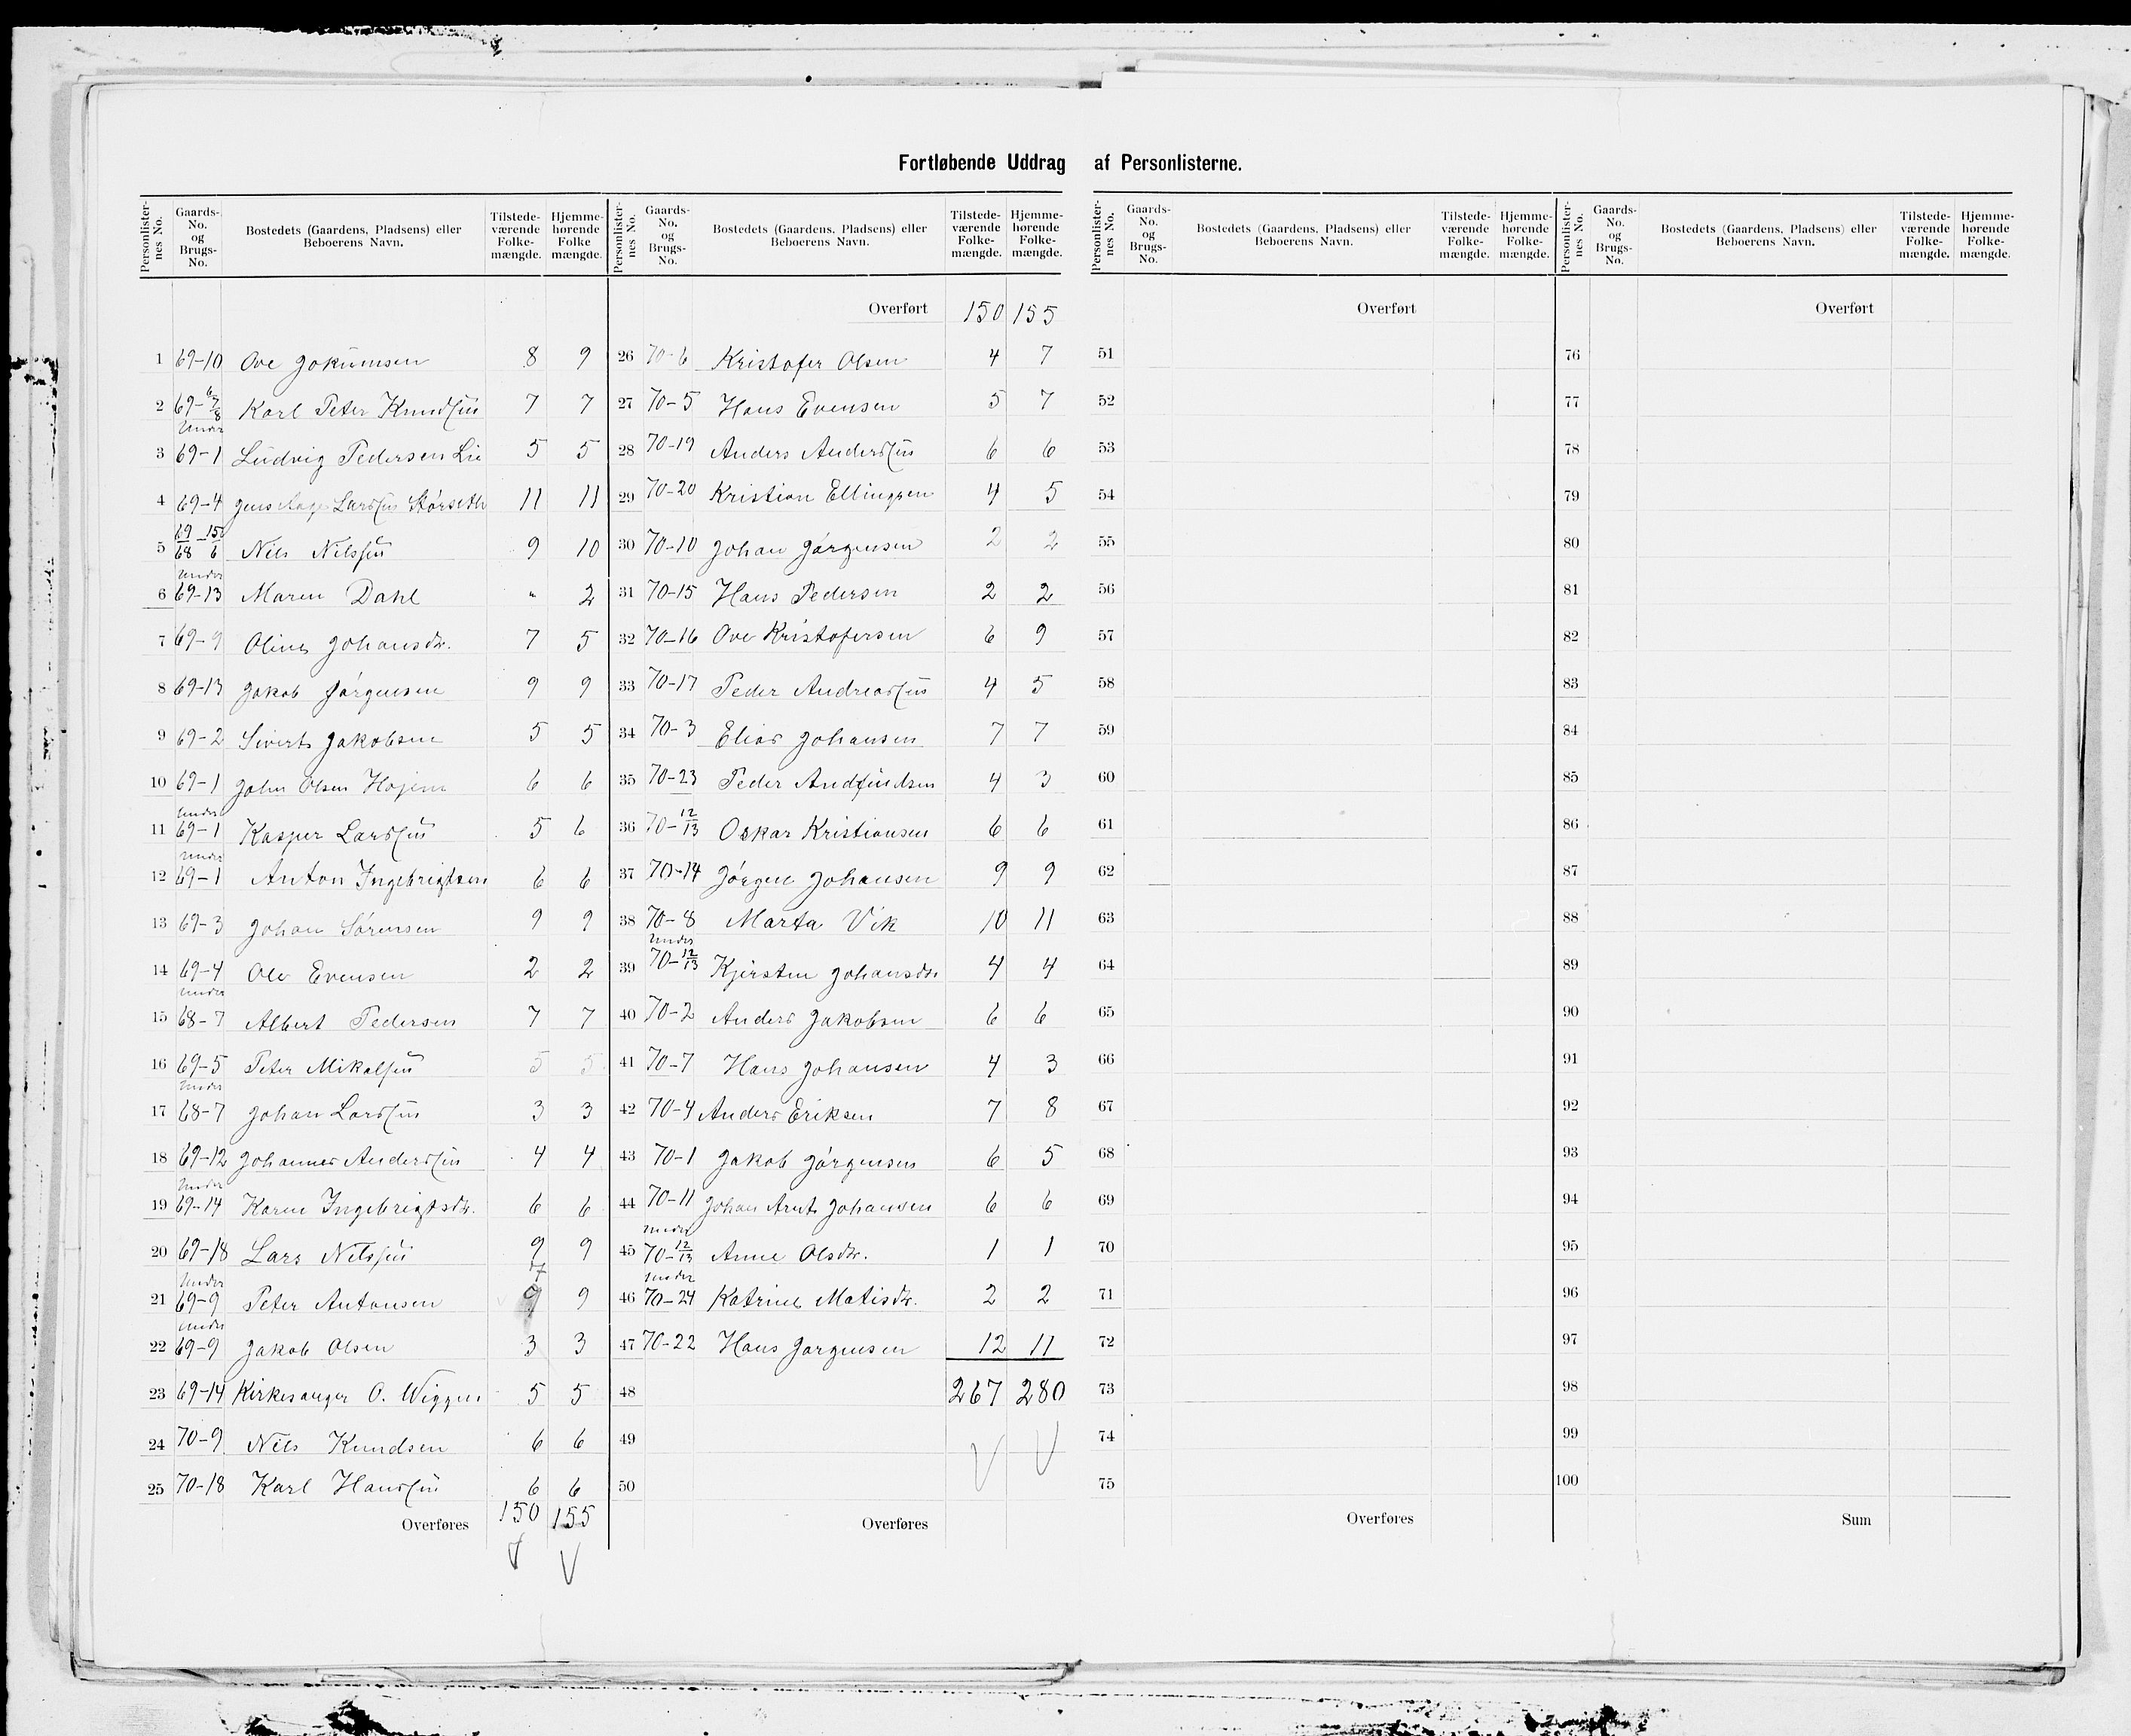 Fortløbende Uddrag af Personlisterne.
Personlisternes No. Gaards-No. og Brugs-No. Bostedets (Gaardens, Pladsens) eller Beboerens Navn. Tilstedeværende Folkemængde. Hjemmehørende Folkemængde.
1 69-10 Ove Jokumsen 8 9
2 69-6/7/8 Karl Peter Knudsen 7 7
3 Under 69-1 Ludvig Pedersen Lie 5 5
4 69-4 Jens Aage Larssen Størseth 11 11
5 69-15 68-6 Nils Nilssen 9 10
6 Under 69-13 Maren Dahl " 2
7 69-9 Oline Johansdr. 7 5
8 69-13 Jakob Jørgensen 9 9
9 69-2 Sivert Jakobsen 5 5
10 69-1 John Olsen Hojem 6 6
11 Under 69-1 Kasper Larssen 5 6
12 Under 69-1 Anton Ingebrigtsen 6 6
13 69-3 Johan Sørensen 9 9
14 69-4 Ole Evensen 2 2
15 Under 68-7 Albert Pedersen 7 7
16 69-5 Peter Mikalsen 5 5
17 Under 68-7 Johan Larssen 3 3
18 69-12 Johannes Anderssen 4 4
19 Under 69-14 Karen Ingebrigtsdr. 6 6
20 69-18 Lars Nilssen 9 9
21 Under 69-9 Peter Antonsen 7 9 9
22 Under 69-9 Jakob Olsen 3 3
23 69-14 Kirkesanger O. Wiggen 5 5
24 70-9 Nils Knudsen 6 6
25 70-18 Karl Hanssen 6 6
Overføres 150 155
Personlisternes No. Gaards-No. og Brugs-No. Bostedets (Gaardens, Pladsens) eller Beboerens Navn. Tilstedeværende Folkemængde. Hjemmehørende Folkemængde.
Overført 150 155
26 70-6 Kristofer Olsen 4 7
27 70-5 Hans Evensen 5 7
28 70-19 Anders Anderssen 6 6
29 70-20 Kristian Ellingsen 4 5
30 70-10 Johan Jørgensen 2 2
31 70-15 Hans Pedersen 2 2
32 70-16 Ove Kristofersen 6 9
33 70-17 Peder Andreassen 4 5
34 70-3 Elias Johansen 7 7
35 70-23 Peder Andfindsen 4 3
36 70-12/13 Oskar Kristiansen 6 6
37 70-14 Jørgen Johansen 9 9
38 70-8 Marta Vik 10 11
39 Under 70-12/13 Kjersten Johansdr. 4 4
40 70-2 Anders Jakobsen 6 6
41 70-7 Hans Johansen 4 3
42 70-4 Anders Eriksen 7 8
43 70-1 Jakob Jørgensen 6 5
44 70-11 Johan Arnt Johansen 6 6
45 Under 70-12/13 Anne Olsdr. 1 1
46 Under 70-24 Katrine Matisdr. 2 2
47 70-22 Hans Jørgensen 12 11
48 267 280
49
50
Overføres
Personlisternes No. Gaards-No. og Brugs-No. Bostedets (Gaardens, Pladsens) eller Beboerens Navn. Tilstedeværende Folkemængde. Hjemmehørende Folkemængde.
Overført
51
52
53
54
55
56
57
58
59
60
61
62
63
64
65
66
67
68
69
70
71
72
73
74
75
Overføres
Personlisternes No. Gaards-No. og Brugs-No. Bostedets (Gaardens, Pladsens) eller Beboerens Navn. Tilstedeværende Folkemængde. Hjemmehørende Folkemængde.
Overført
76
77
78
79
80
81
82
83
84
85
86
87
88
89
90
91
92
93
94
95
96
97
98
99
100
Sum